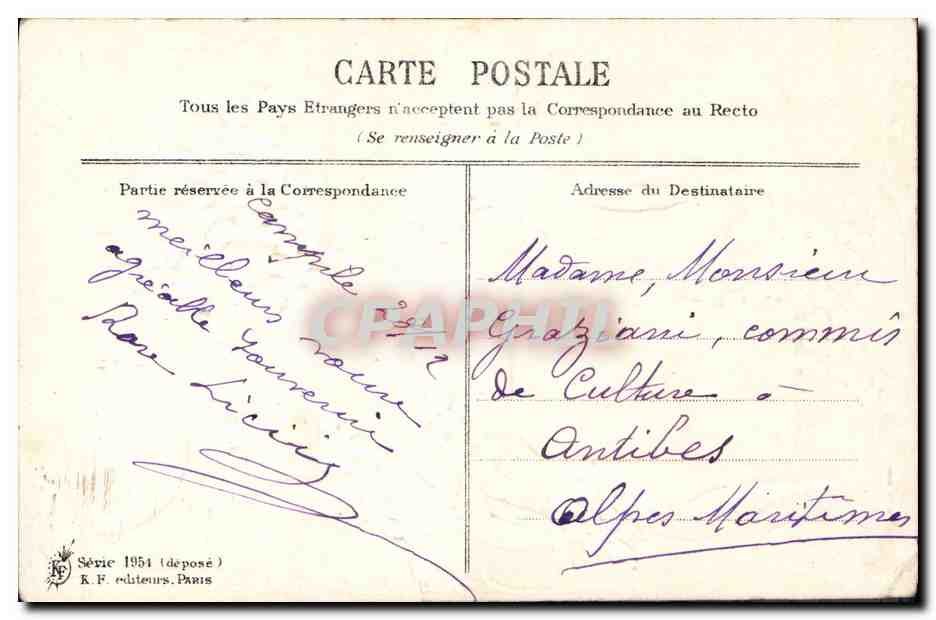 CARTE POSTALE
Tous les Pays Etrangers n'acceptent pas la Correspondance au Recto
(Se renseigner à la Poste)
Partie réservée à la Correspondance
meilleurs
agréable souvenir
Rose
Adresse du Destinataire
Madame, Monsieur
Graziani, commis
de Culture à
Antibes
Alpes Maritimes
CPAPHIL
KF
Série 1954 (déposé)
K. F. editeurs. PARIS